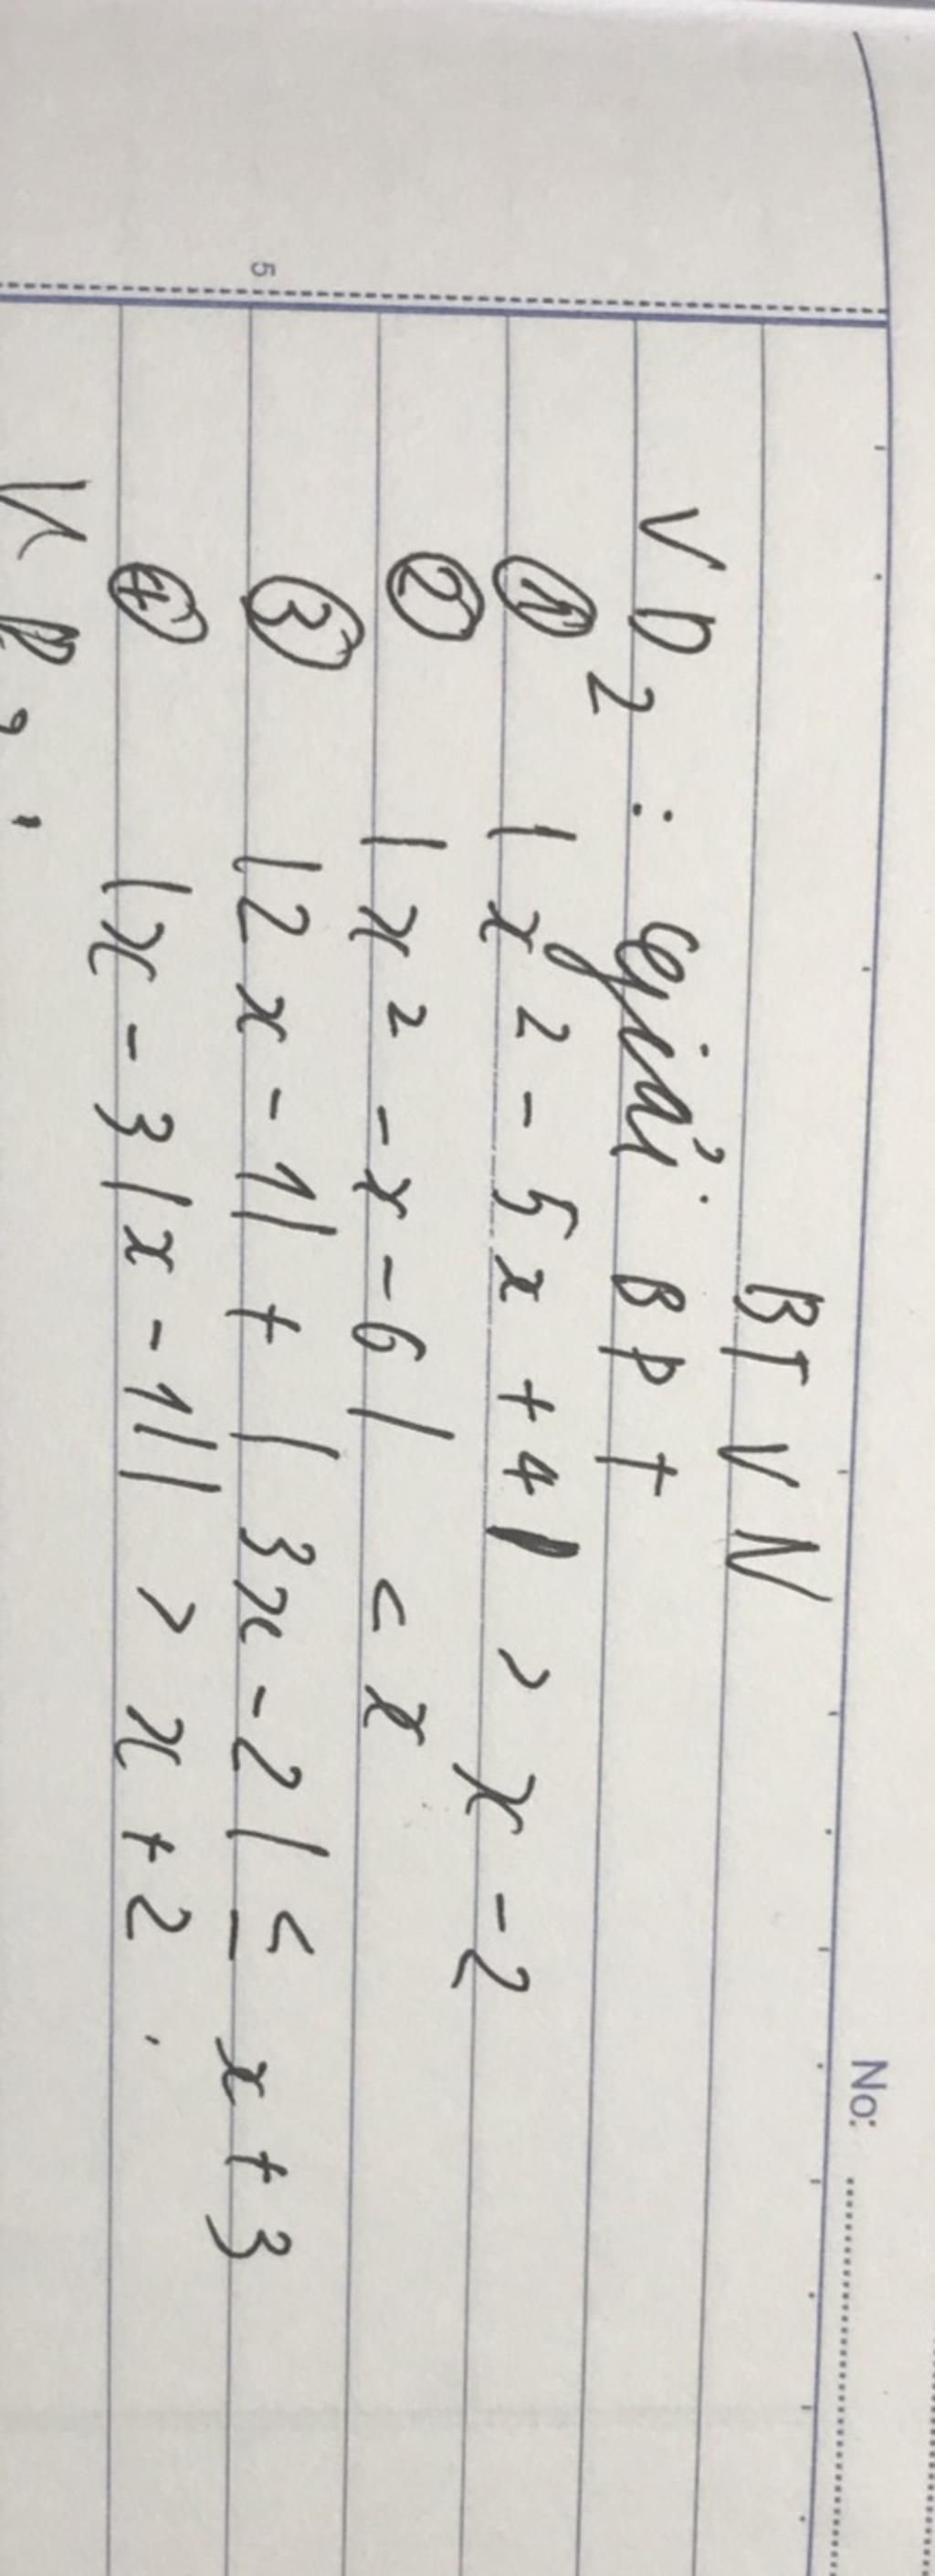 No:
BTVN
VD2: Giải BPT
① |x² - 5x + 4| > x - 2
② |x² - x - 6| < x
5
③ |2x - 1| + |3x - 2| ≤ x + 3
④ |x - 3|x - 1|| > x + 2.